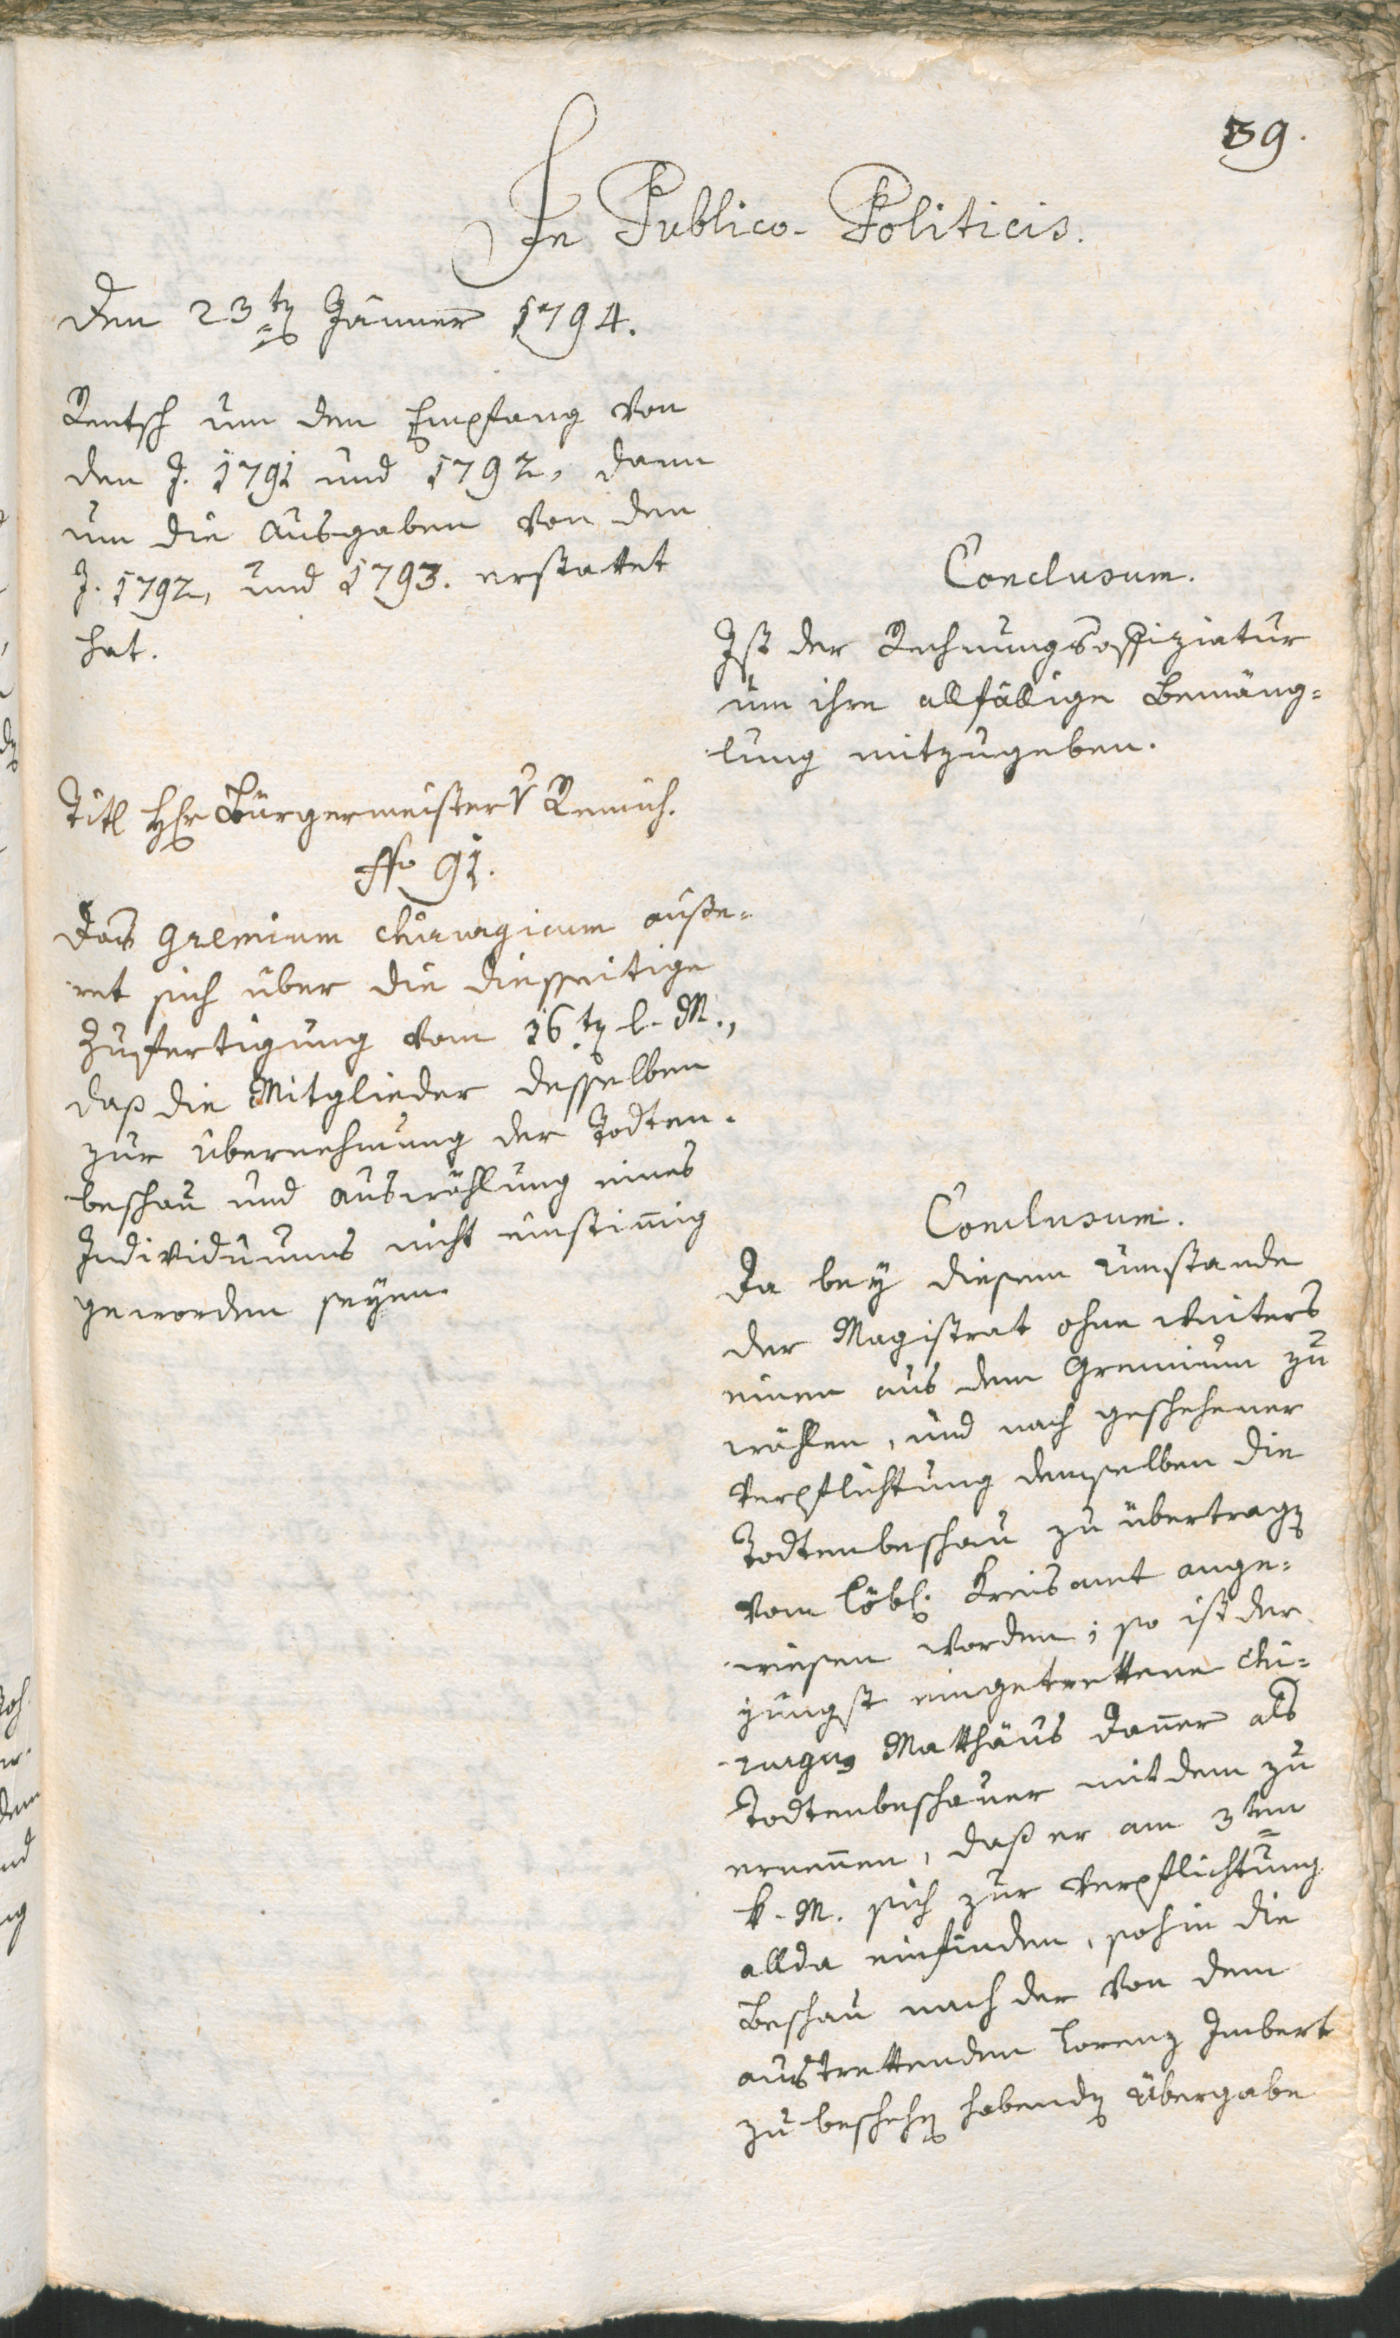 59.
In Publico-Politicis.
Den 23ten Jänner 1794.
Rentsch um den Empfang von
den J. 1791 und 1792, dann
um die Ausgaben von den
J. 1792, und 1793. erstattet
hat.
Conclusum.
Ist der Rechnungsoffiziatur
um ihre allfällige Bemäng=
lung mitzugeben.
Titl Hr Bürgermeister v Remich.
91.
Das Gremium chirurgicum äuße=
ret sich über die diesseitige
Zufertigung vom 16ten l. M.,
daß die Mitglieder desselben
zur Übernehmung der Todten=
beschau und Auswählung eines
Individuums nicht einstimig
geworden seyen.
Conclusum.
Da bey diesem Umstande
der Magistrat ohne weiters
einen aus dem Gremium zu
wählen, und nach geschehener
Verpflichtung demselben die
Todtenbeschau zu übertragen
vom löbl. Kreisamt ange=
wiesen worden; so ist der
jüngst eingetrettene Chi=
rurgus Matthäus Daner als
Todtenbeschauer mit dem zu
ernenen, daß er am 3ten
k. M. sich zur Verpflichtung
allda einfinden, sohin die
Beschau nach der von dem
austrettenden Lorenz Imbert
zu beschehen habenden Übergabe